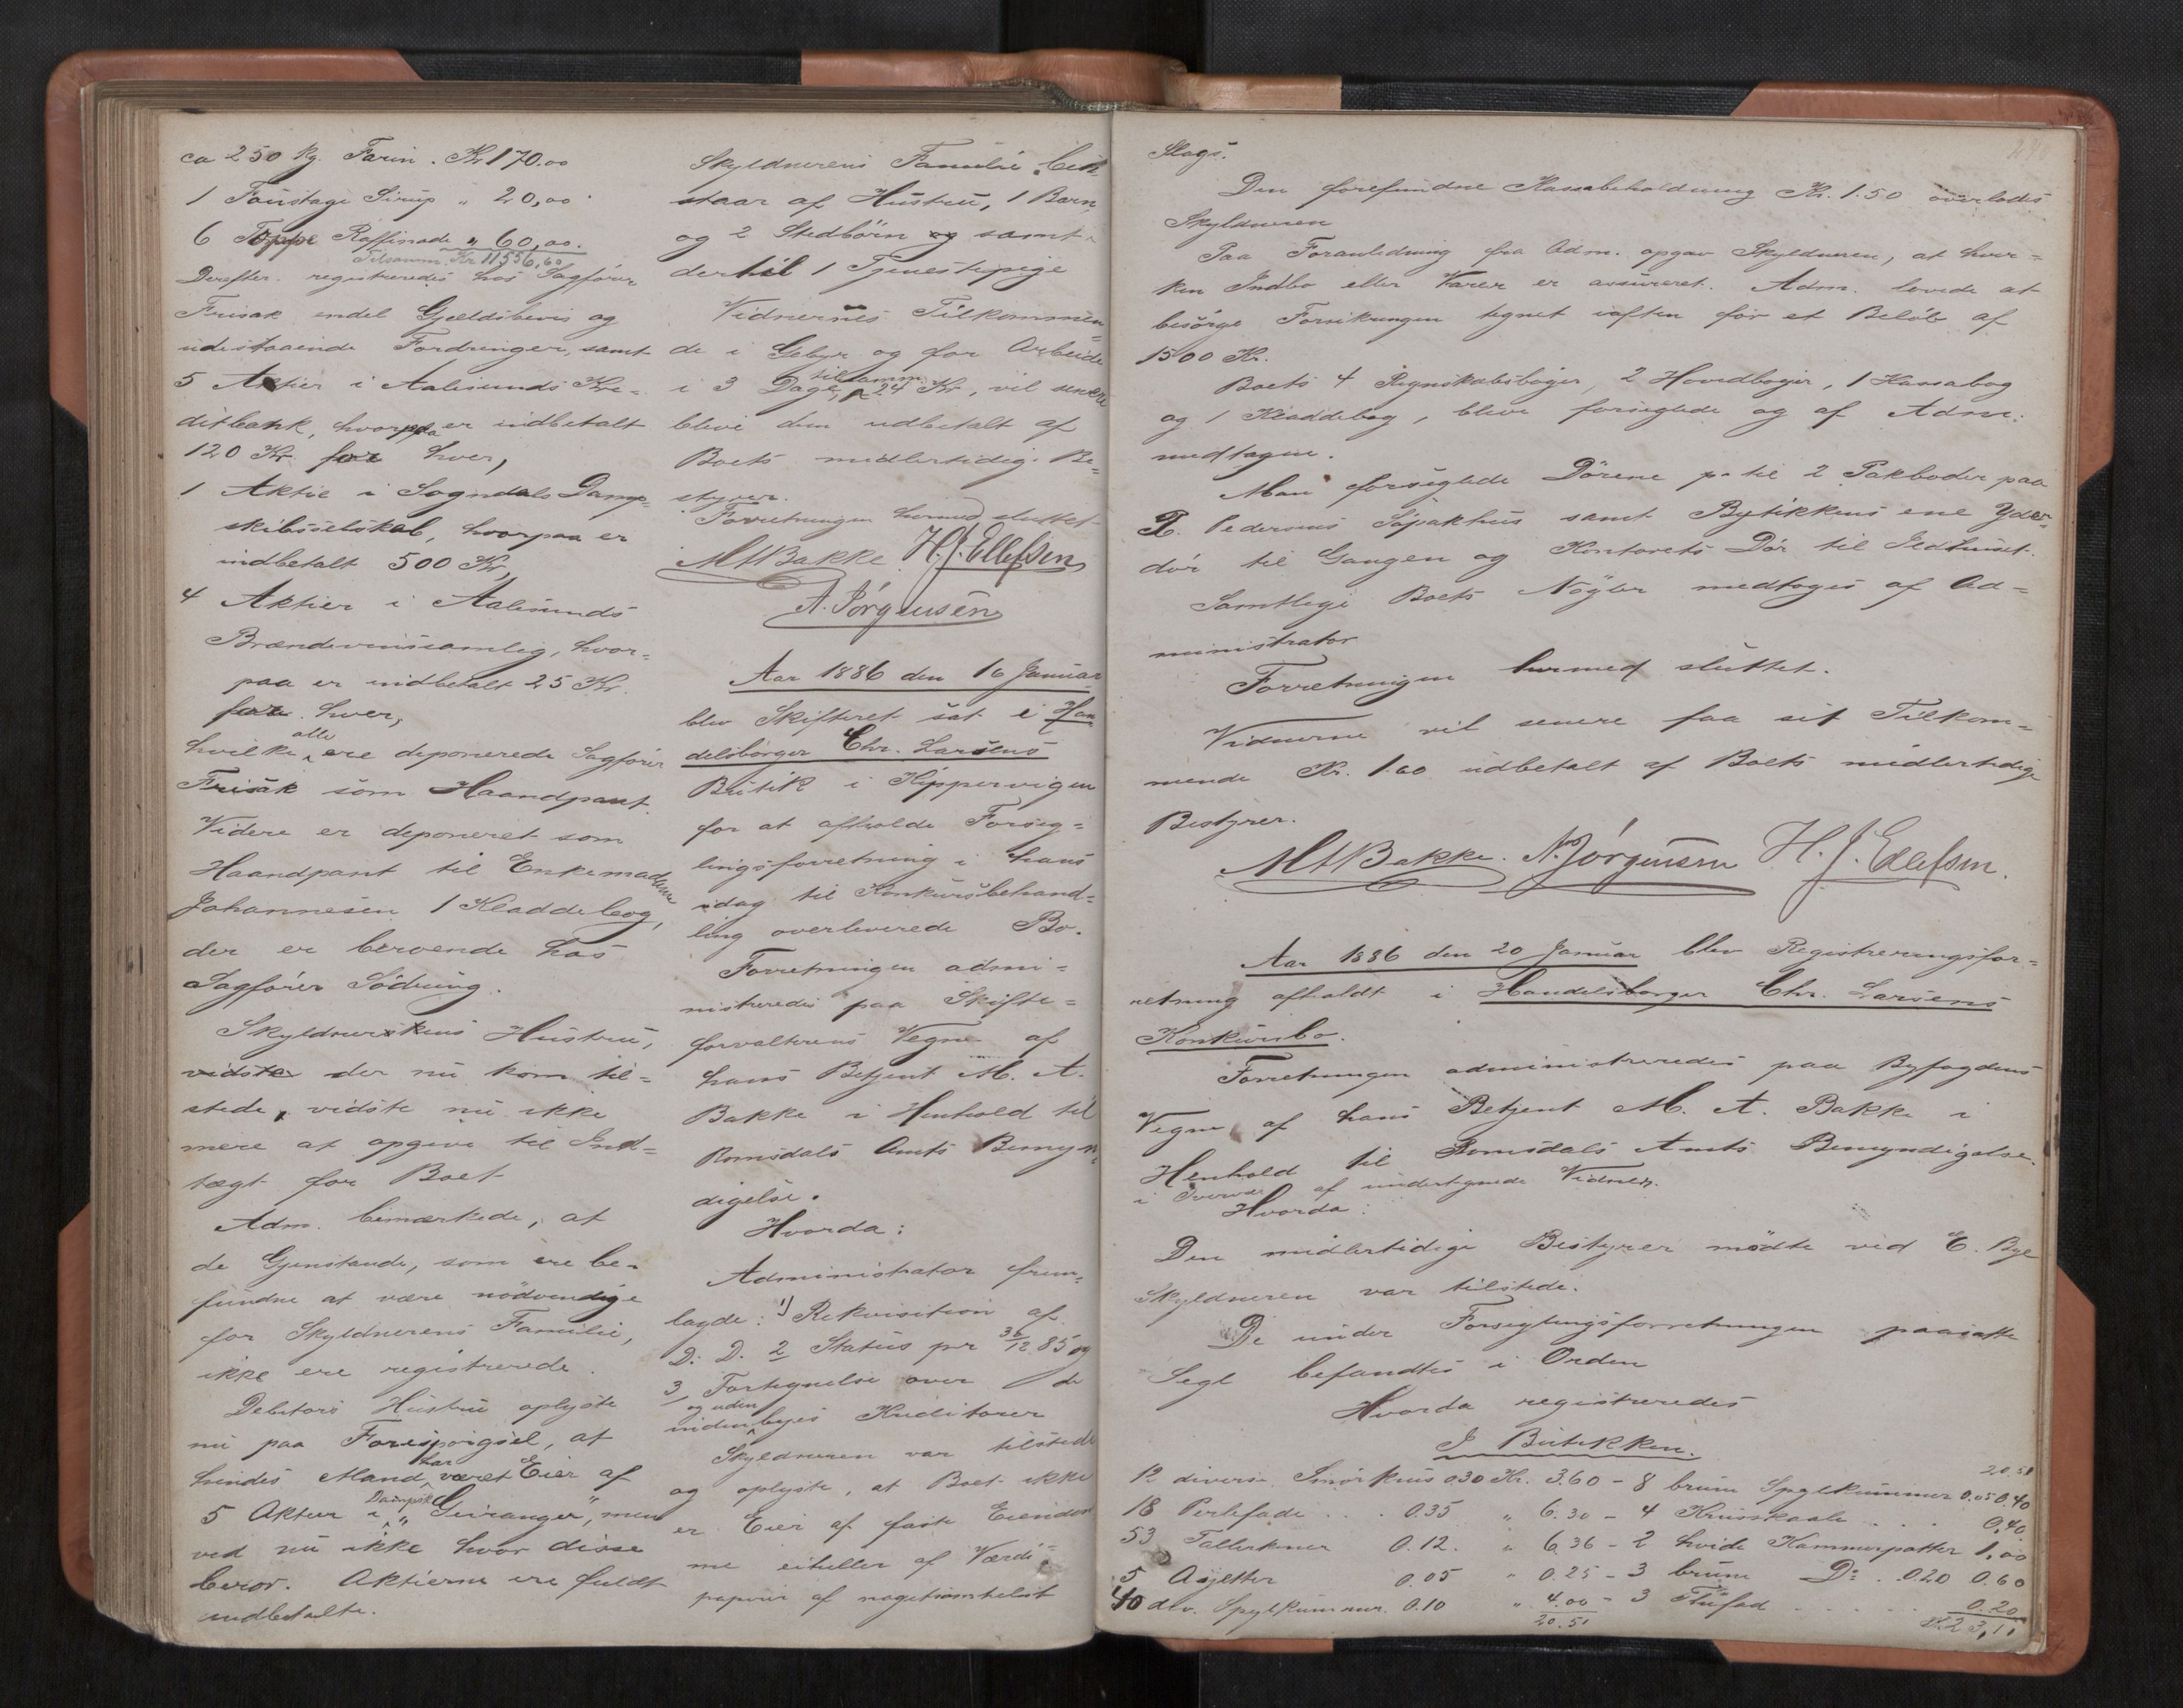 ca 250 Kg. Farin . Kr 170.00
1 Foustage Sirup " 20,00
6 Toppe Raffinade " 60,00.
Tilsamm. Kr 11556,60
Derefter registreredes hos Sagfører
Frisak endel Gjældsbevis og
udestaaende Fordringer, samt
5 Aktier i Aalesunds Kre=
ditbank, hvorpaa er indbetalt
120 Kr. for hver,
1 Aktie i Sogndals Damp=
skibsselskab, hvorpaa er
indbetalt 500 Kr,
4 Aktier i Aalesunds
Brændevinssamlag, hvor=
paa er indbetalt 25 Kr.
for hver,
hvilke alle ere deponerede Sagfører
Frisak som Haandpant.
Videre er deponeret som
Haandpant til Enkemadame
Johannesen 1 Kladdebog,
der er beroende hos
Sagfører Södring.
Skyldnerskens Hustru,
vidste der nu kom til=
stede, vidste nu ikke
mere at opgive til Ind=
tægt for Boet
Adm. bemærkede, at
de Gjenstande, som ere be=
fundne at være nödvendige
for Skyldnerens Familie,
ikke ere registrerede.
Debitors Hustru oplyste
nu paa Forespörgsel, at
hendes Mand har været Eier af
5 Aktier i Dampsk "Geiranger", men
ved nu ikke hvor disse
beror. Aktierne ere fuldt
indbetalte.
Skyldnerens Familie be=
staar af Hustru, 1 Barn,
og 2 Stedbörn og samt
dertil 1 Tjenestepige
Vidnernes Tilkommen=
de i Gebyr og for Arbeide
i 3 Dage, tilsamm. 24 Kr, vil senere
blive dem udbetalt af
Boets midlertidige Be=
styrer.
Forretningen hermed sluttet
M A Bakke. H. J. Ellefsen
A. Jörgensen
Aar 1886 den 16 Januar
blev Skifteret sat i Han
delsborger Chr. Larsens
Butik i Kippervigen
for at afholde Forseg=
lingsforretning i hans
idag til Konkursbehand=
ling overleverede Bo.
Forretningen admi=
nistreredes paa Skifte=
forvalterens Vegne af
hans Betjent M. A.
Bakke i Henhold til
Romsdals Amts Bemyn=
digelse.
Hvorda:
Administrator frem=
lagde: 1) Rekvisition af
D. D. 2 Status pr 31/12 85 og
3, Fortegnelse over de
inden og uden byes Kreditorer
Skyldneren var tilstede
og oplyste, at Boet ikke
er Eier af faste Eiendom
me eiheller af Værdi=
papirer af nogetsomhelst
Slags.
Den forefundne Kassabeholdning Kr. 1.50 overlodes
Skyldneren
Paa Foranledning fra Adm. opgav Skyldneren, at hver=
ken Indbo eller Varer er assureret. Adm. lovede at
besörge Forsikringen tegnet iaften for et Beløb af
1500 Kr.
Boets 4 Regnskabsböger, 2 Hovedböger, 1 Kassabog
og 1 Kladdebog, bleve forseglede og af Adm.
medtagne.
Man forseglede Dörene til 2 Pakboder paa
R. Pedersens Söpakhus samt Butikkens ene Yder
dör til Gangen og Kontorets Dör til Ildhuset.
Samtlige Boets Nögler medtoges af Ad=
ministrator
Forretningen hermed sluttet.
Vidnerne vil senere faa sit Tilkom=
mende Kr. 1.60 udbetalt af Boets midlertidige
Bestyrer.
M A Bakke. A. Jörgensen H. J. Ellefsen.
Aar 1886 den 20 Januar blev Registreringsfor=
retning afholdt i Handelsborger Chr. Larsens
Konkursbo.
Forretningen administreredes paa Byfogdens
Vegne af hans Betjent M. A. Bakke i
Henhold til Romsdals Amts Bemyndigelse
i Overvær af undertegnede Vidner.
Hvorda:
Den midlertidige Bestyrer mödte ved E. Bye
Skyldneren var tilstede.
De under Forseglingsforretningen paasatte
Segl befandtes i Orden
Hvorda registreredes
I Butikken.
20.51
12 diverse Smörkrus 0.30 Kr. 3.60 - 8 brune Spylkummer 0.05 0.40
18 Perlefade . . . 0.35 " 6.30 - 4 Krusskaale . . . 0,40
53 Tallerkener 0.12. " 6.36 - 2 hvide Kammerpotter 1,00
5 Asjetter 0.05 " 0.25 - 3 brune Do . 0.20 0.60
40 dlv. Spylkummer. 0.10 " 4.00 - 3 Fad . . . 0.20
20.51 Kr. 23,11